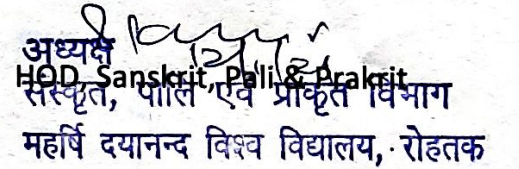 अध्यक्ष
HOD, Sanskrit, Pali & Prakrit
संस्कृत, पालि एवं प्राकृत विभाग
महर्षि दयानन्द विश्व विद्यालय, रोहतक